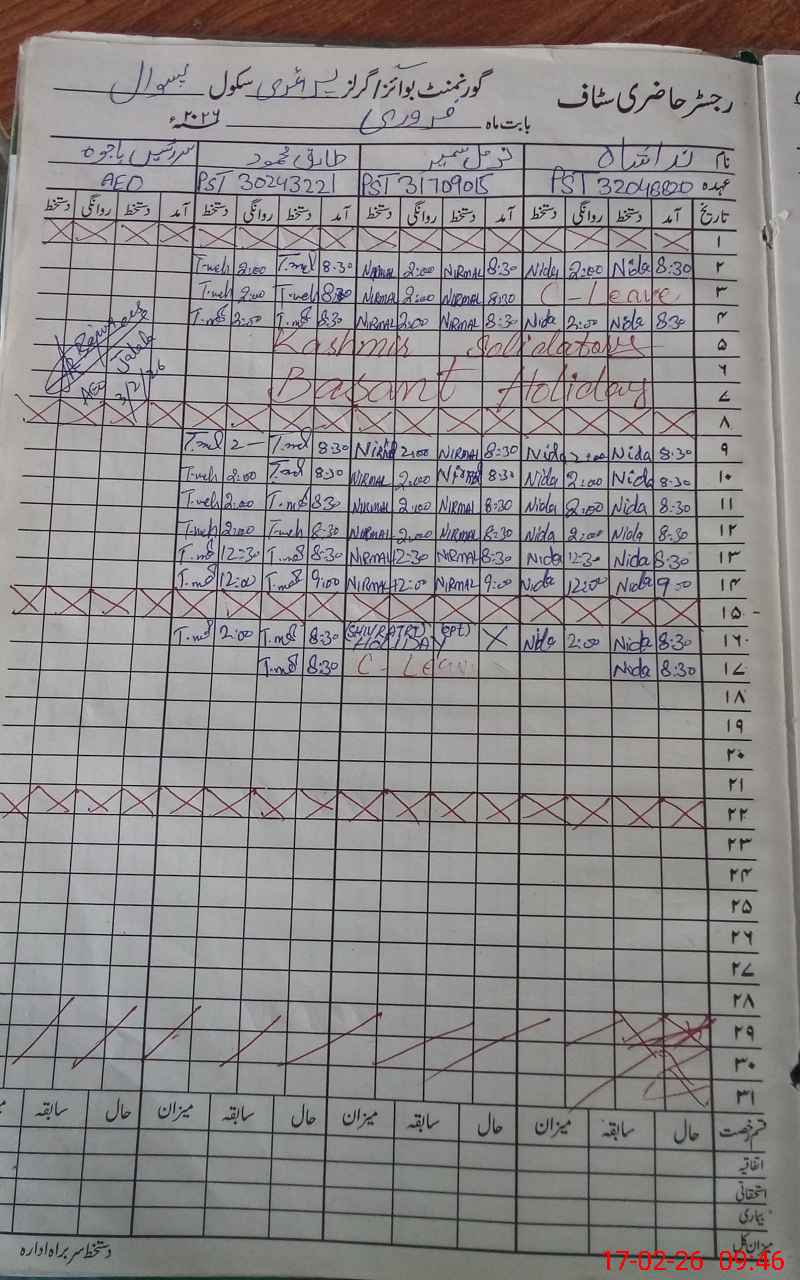 رجسٹر حاضری سٹاف گورنمنٹ بوائز / گرلز پرائمری سکول
بابت ماہ فروری ۲۰۲۶ء
نام ندا شاہ نرمل سمیر طارق محمود
عہدہ PST 32048820 PST 31709015 PST 30243221 AEO
تاریخ آمد دستخط روانگی دستخط آمد دستخط روانگی دستخط آمد دستخط روانگی دستخط آمد دستخط روانگی دستخط
۱
۲ 8:30 Nida 2:00 Nida 8:30 NIRMAL 2:00 NIRMAL 8:30 T.meh 2:00 T.meh
۳ C - Leave 8:30 NIRMAL 2:00 NIRMAL 8:30 T.meh 2:00 T.meh
۴ 8:30 Nida 2:00 Nida 8:30 NIRMAL 2:00 NIRMAL 8:30 T.md 2:00 T.md
۵ Kashmir
۶
۷ Basant Holiday
AEO
3/2/26
۸
۹ 8:30 Nida 2:00 Nida 8:30 NIRMAL 2:00 8:30 T.md 2— T.md
۱۰ 8:30 Nida 2:00 Nida 8:30 2:00 NIRMAL 8:30 T.md 2:00 T.meh
۱۱ 8:30 Nida 2:00 Nida 8:30 NIRMAL 2:00 NIRMAL 8:30 T.md 2:00 T.meh
۱۲ 8:30 Nida 2:00 Nida 8:30 NIRMAL 2:00 NIRMAL 8:30 T.meh 2:00 T.meh
۱۳ 8:30 Nida 12:30 Nida 8:30 NIRMAL 12:30 NIRMAL 8:30 T.md 12:30 T.md
۱۴ 9:00 Nida 12:00 Nida 9:00 NIRMAL 12:00 NIRMAL 9:00 T.md 12:00 T.md
۱۵
۱۶ 8:30 Nida 2:00 Nida X (SHIVRATRI) (OPT) HOLIDAY 8:30 T.md 2:00 T.md
۱۷ 8:30 Nida C - Leave 8:30 T.md
۱۸
۱۹
۲۰
۲۱
۲۲
۲۳
۲۴
۲۵
۲۶
۲۷
۲۸
۲۹
۳۰
۳۱
قسم رخصت حال سابقہ میزان حال سابقہ میزان حال سابقہ میزان حال سابقہ
اتفاقیہ
استحقاقی
بیماری
میزان کل
دستخط سربراہ ادارہ
17-02-26 09:46